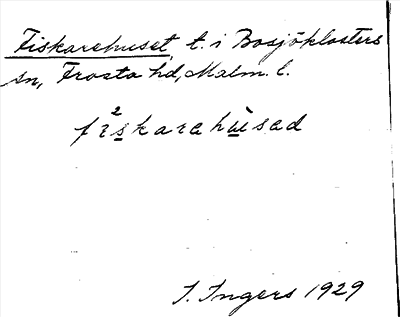 Fiskarehuset, t. i Bosjöklosters
sn, Frosta hd, Malm. l.
fɪ²skarahùsad
I. Ingers 1929